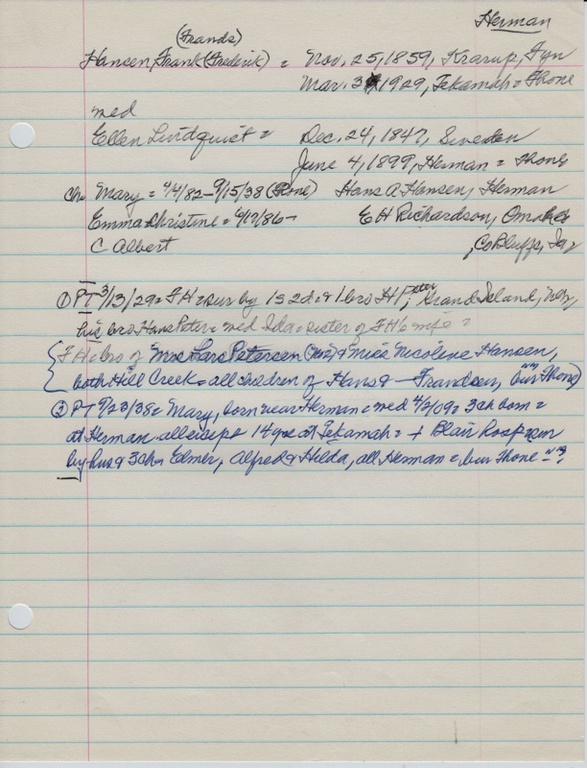 Herman
(Frands)
Hansen, Frank (Frederik) = Nov. 25, 1859, Krarup, Fyn
Mar. 3, 1929, Tekamah = Rhone
med
Ellen Lindquist = Dec. 24, 1847, Sweden
June 4, 1899, Herman = Rhone
ch. Mary = 4/4/82 - 9/15/38 (Rhone) Hans A Hansen, Herman
Emma Christine = 4/17/86 - E H Richardson, Omaha
C Albert , Co Bluffs, Ia,
① PT 3/13/29 = F H sur by 1 s 2 d & 1 bro H Peter, Grand Island, Neb,
his bro Hans Peter = med Ida = sister of F H's wife =
F H = bro of Mrs Lars Petersen & Miss Nicolene Hansen,
both Hill Creek = all children of Hans & — Frandsen, (bur Rhone)
② PT 9/23/38 = Mary, born near Herman = med 4/3/09 = 3 ch born =
at Herman all except 14 yrs at Tekamah = + Blair Hosp = sur
by hus & 3 ch = Elmer, Alfred & Hilda, all Herman = bur Rhone = "?